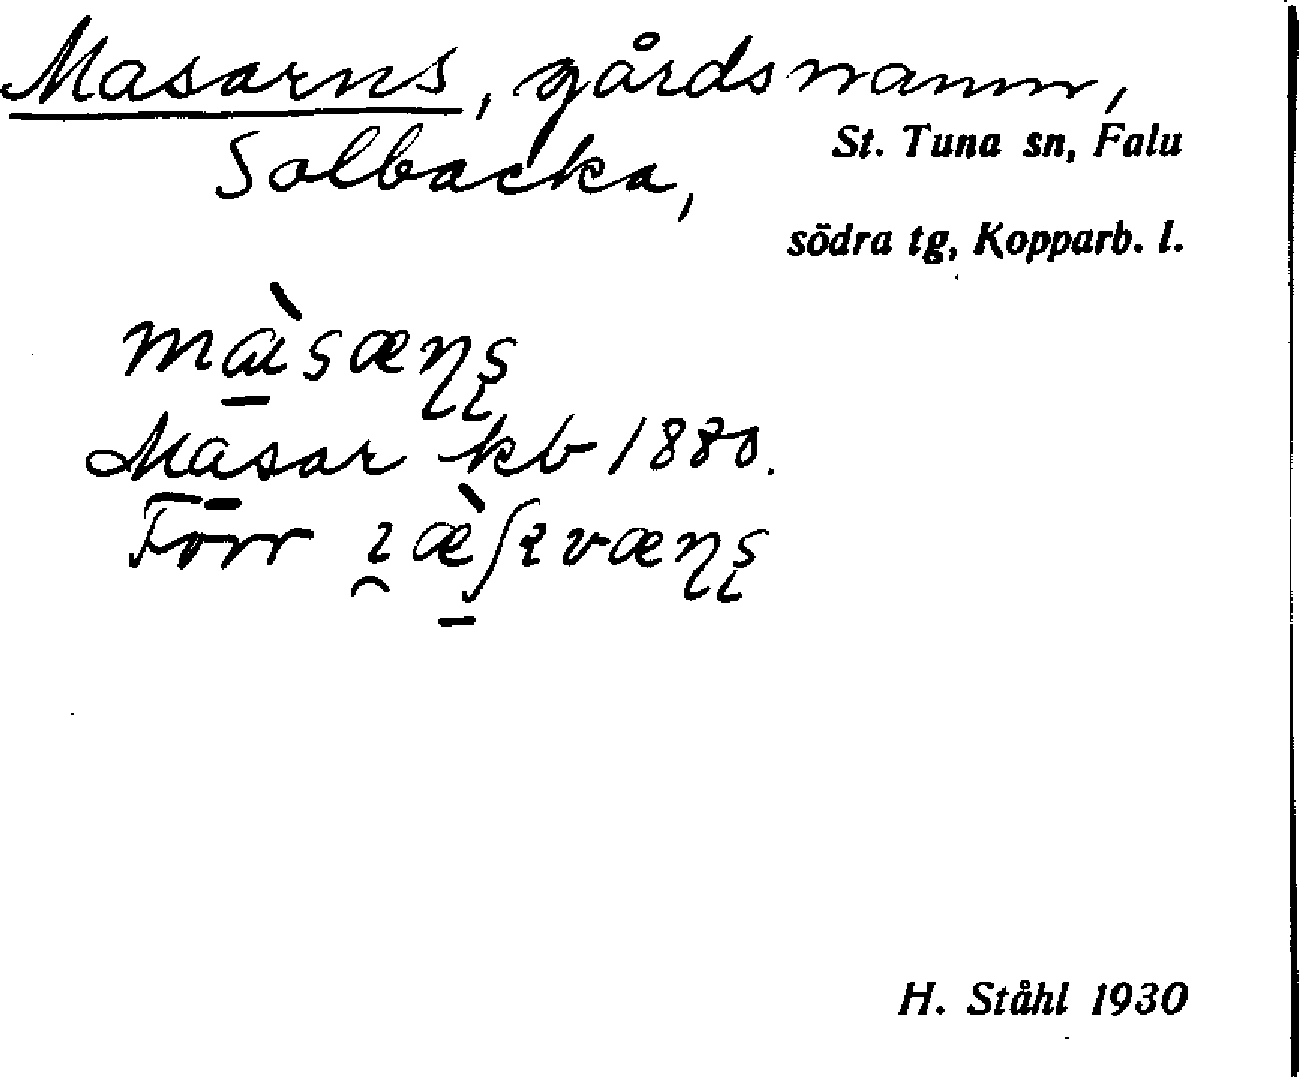 Masarns, gårdsnamn,
Solbacka,
St. Tuna sn, Falu
södra tg, Kopparb. l.
Masar kb 1880.
Förr
H. Ståhl 1930